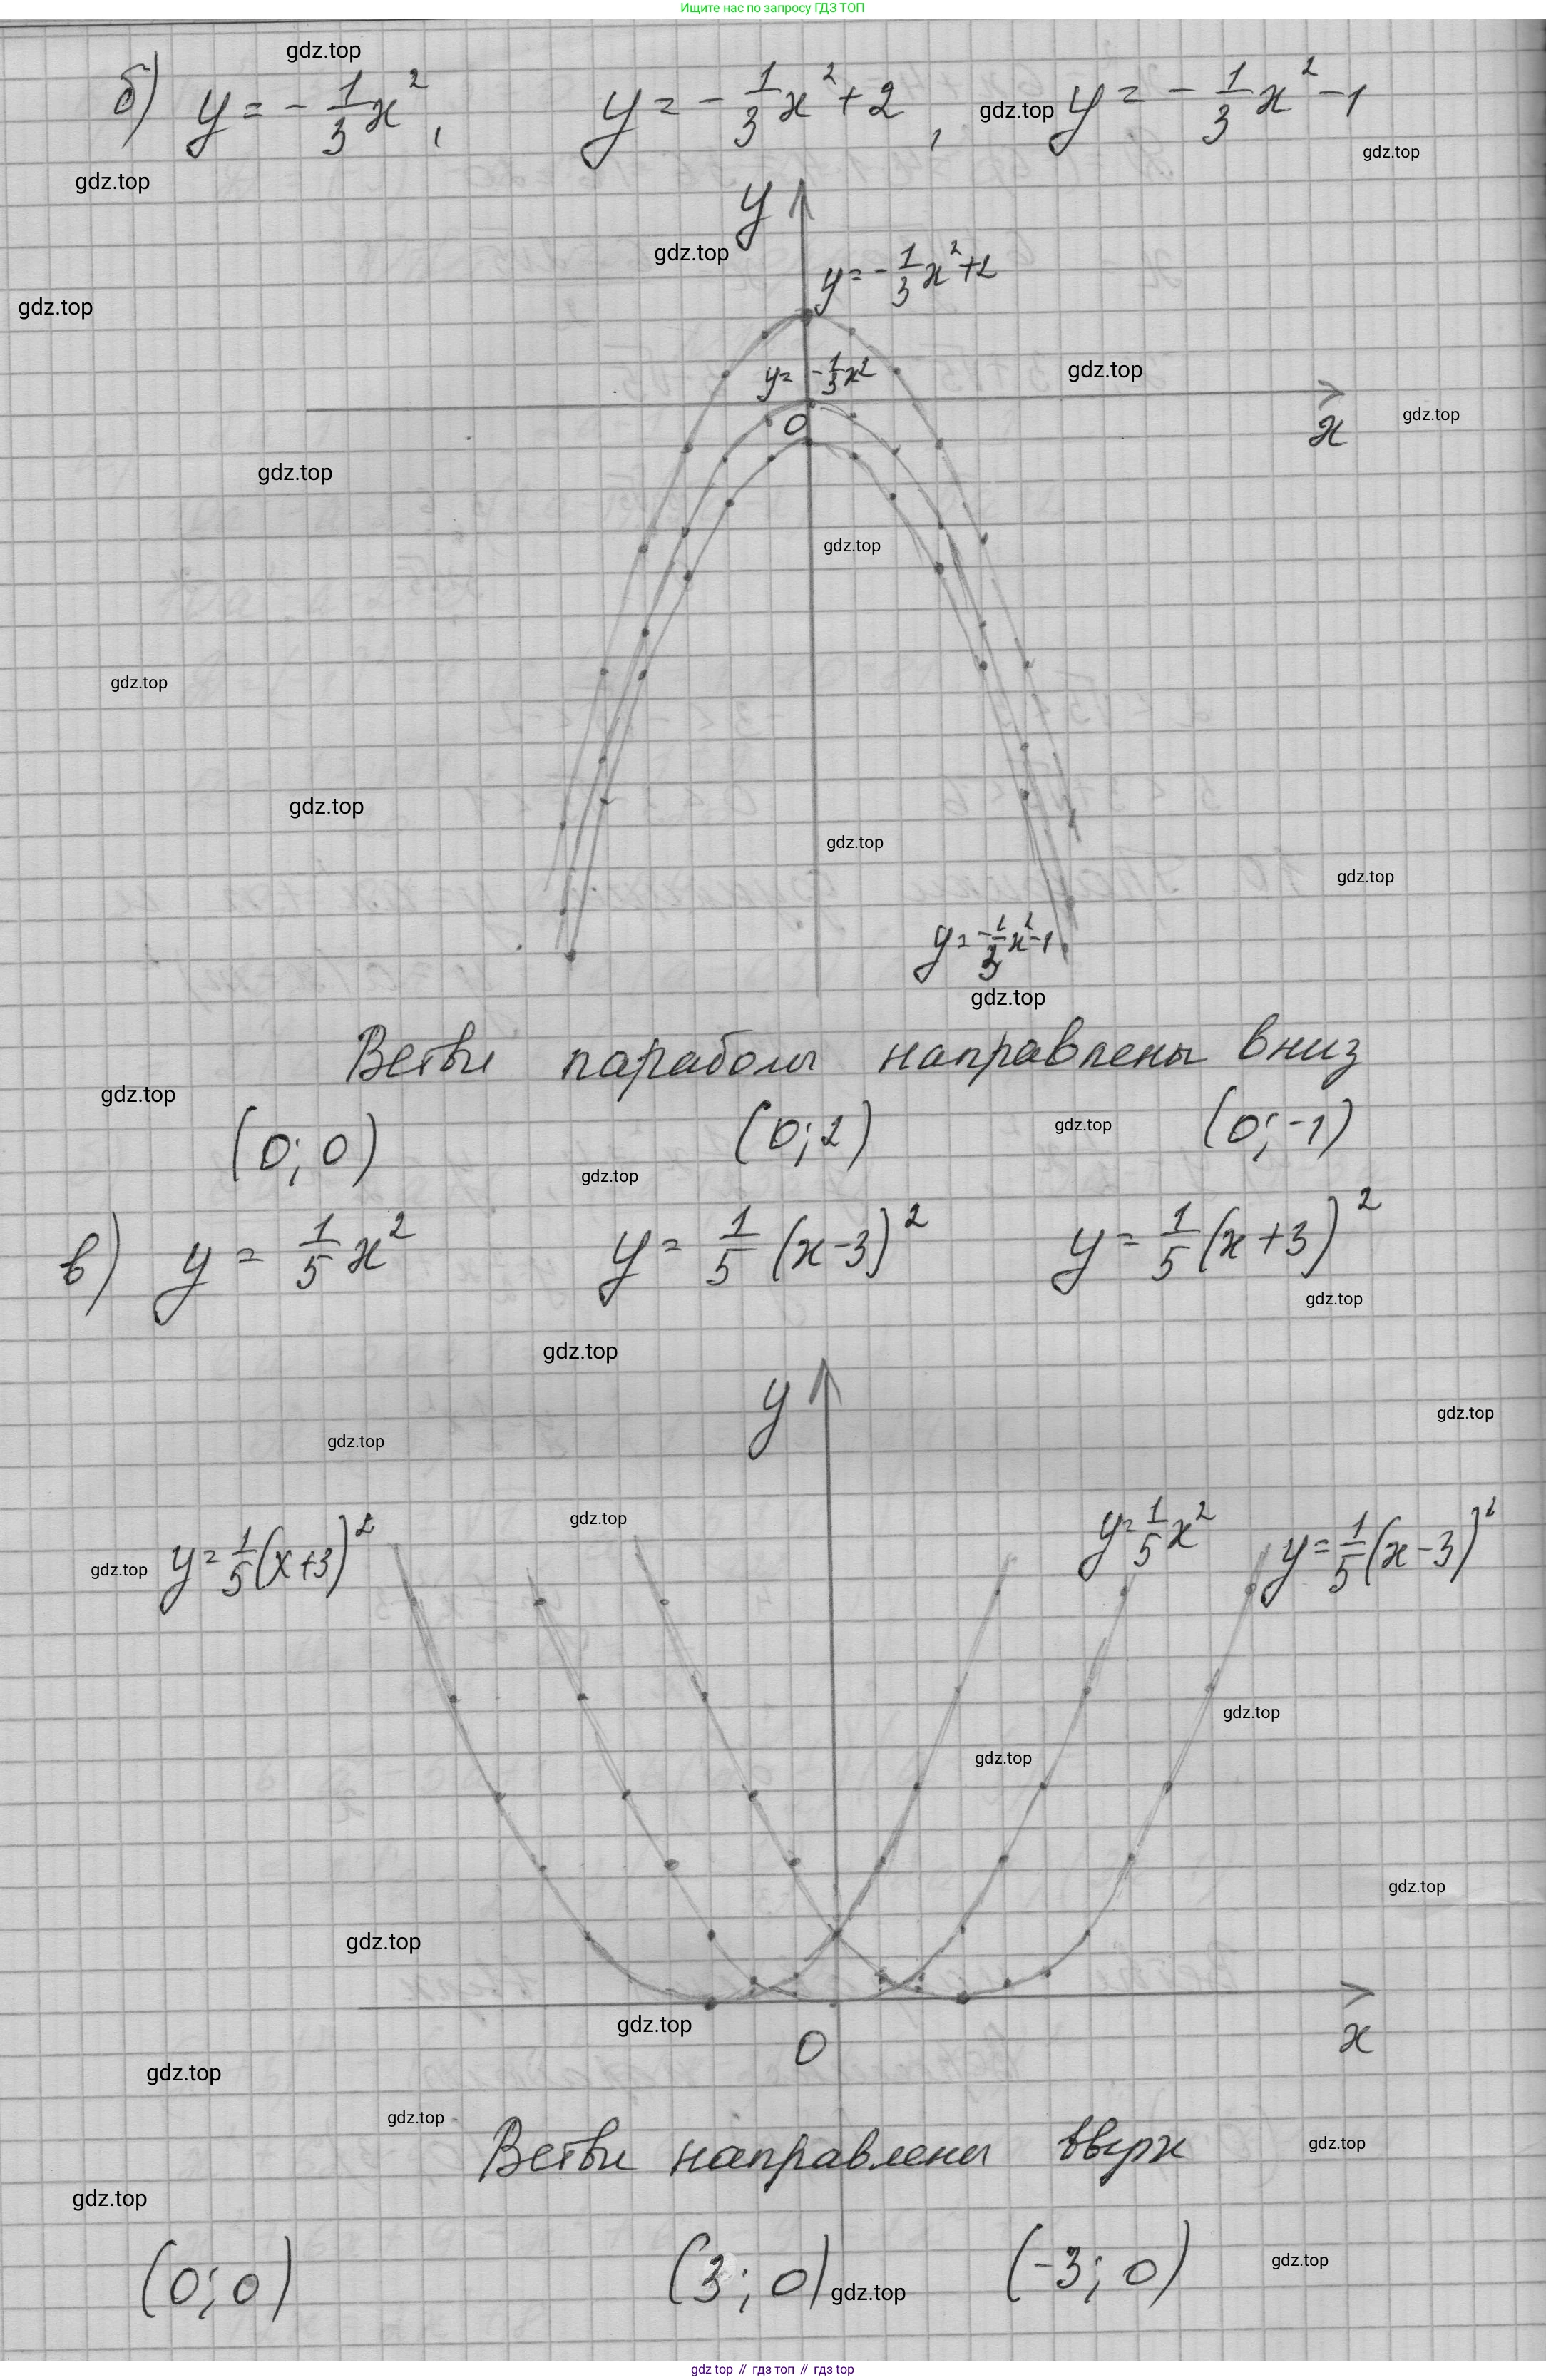 Ищите нас по запросу ГДЗ ТОП
gdz.top
б) y = - 1/3 x², y = - 1/3 x² + 2, gdz.top y = - 1/3 x² - 1
gdz.top
gdz.top
y
gdz.top
y = - 1/3 x² + 2
gdz.top
y = - 1/3 x²
gdz.top
0
x
gdz.top
gdz.top
gdz.top
gdz.top
gdz.top
gdz.top
gdz.top
y = - 1/3 x² - 1
gdz.top
Ветви параболы направлены вниз
gdz.top
(0; 0) (0; 2) gdz.top (0; -1)
gdz.top
в) y = 1/5 x² y = 1/5 (x - 3)² y = 1/5 (x + 3)²
gdz.top
gdz.top
y
gdz.top
gdz.top
gdz.top
gdz.top y = 1/5 (x + 3)² y = 1/5 x² y = 1/5 (x - 3)²
gdz.top
gdz.top
gdz.top
gdz.top
gdz.top
0
x
gdz.top
gdz.top
Ветви направлены вверх
gdz.top
gdz.top
(0; 0) (3; 0) gdz.top (-3; 0) gdz.top
gdz top // гдз топ // гдз top